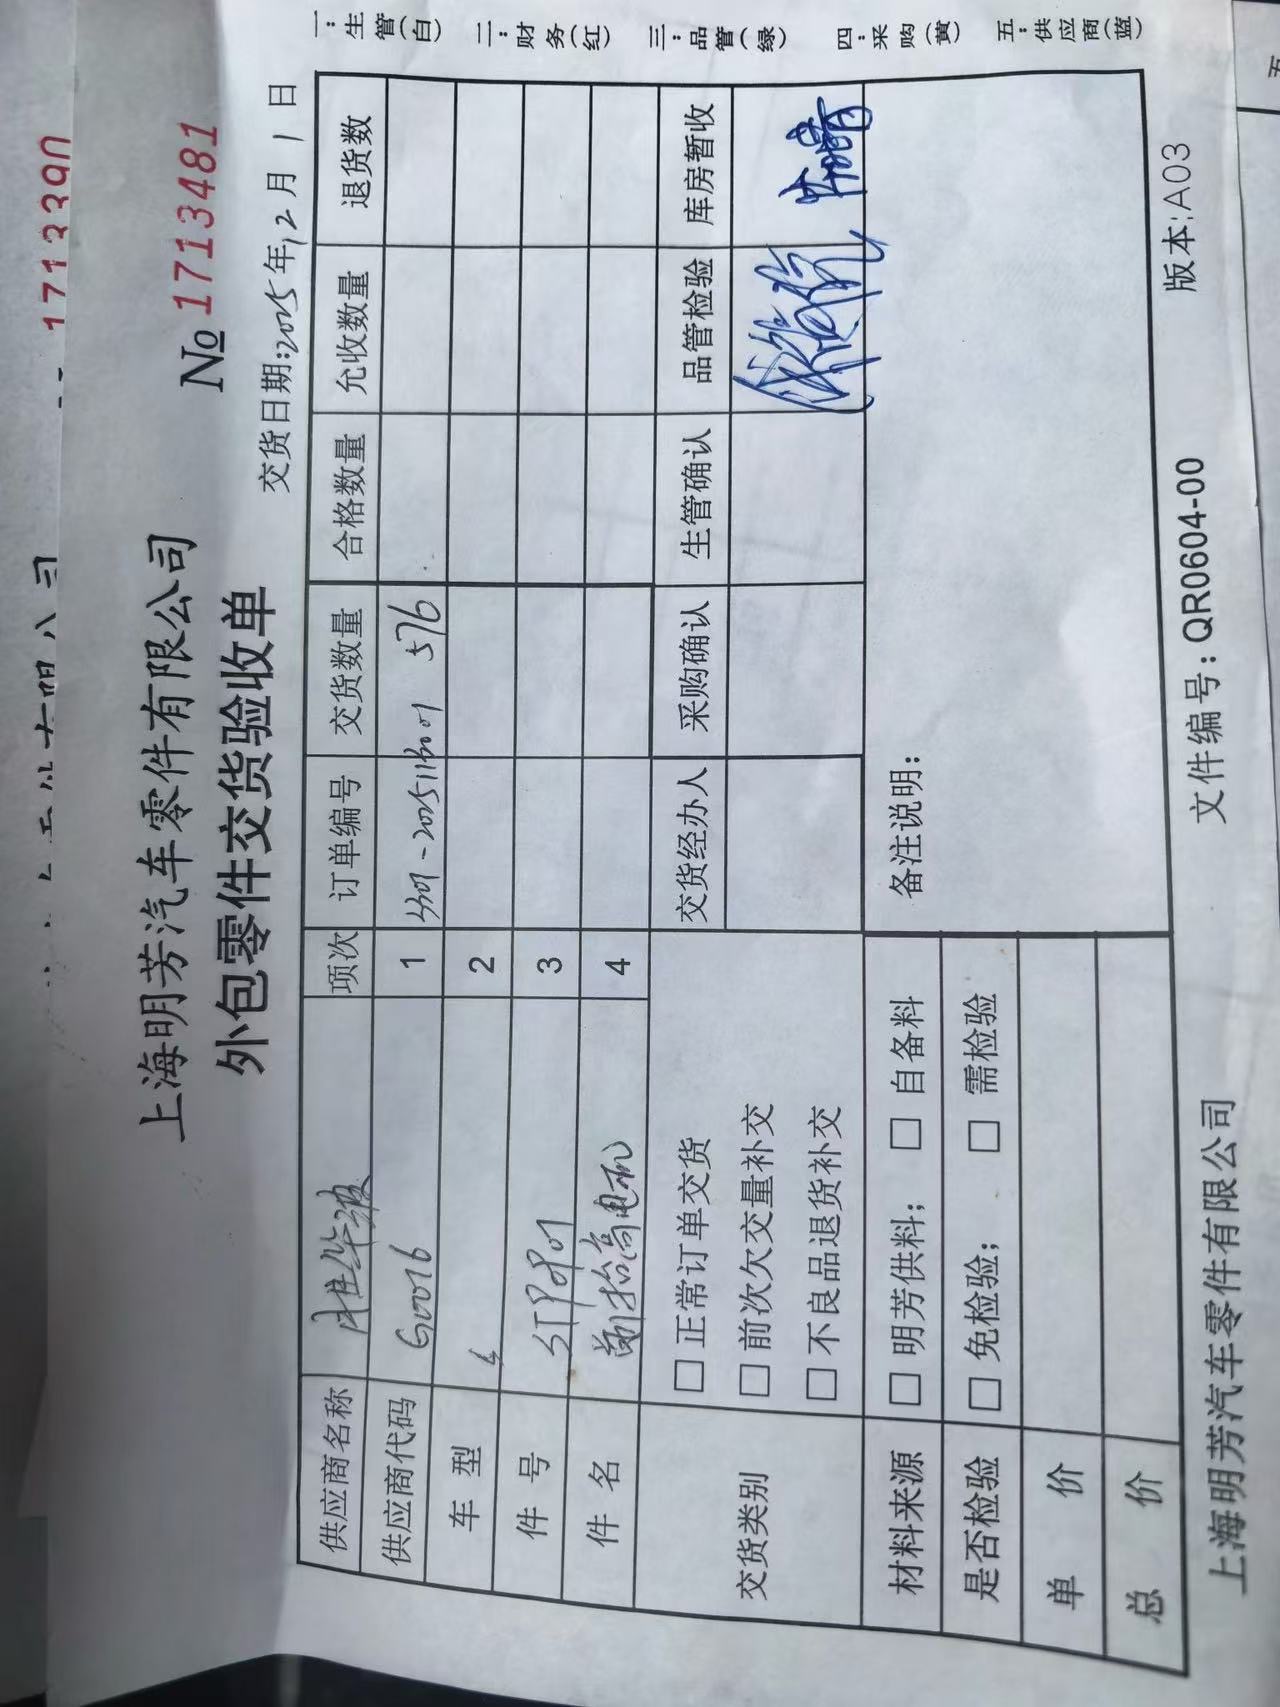 1713390
上海明芳汽车零件有限公司
外包零件交货验收单
№ 1713481
交货日期:2025年12月1日
供应商名称
项次 订单编号 交货数量 合格数量 允收数量 退货数
供应商代码 G0016 1 576
车型 2
件号 3
件名 前抬高电机 4
交货类别
□ 正常订单交货
□ 前次欠交量补交
□ 不良品退货补交
交货经办人 采购确认 生管确认 品管检验 库房暂收
材料来源 □ 明芳供料; □ 自备料
是否检验 □ 免检验; □ 需检验
单价
总价
备注说明:
一:生管(白) 二:财务(红) 三:品管(绿) 四:采购(黄) 五:供应商(蓝)
上海明芳汽车零件有限公司 文件编号:QR0604-00 版本:A03